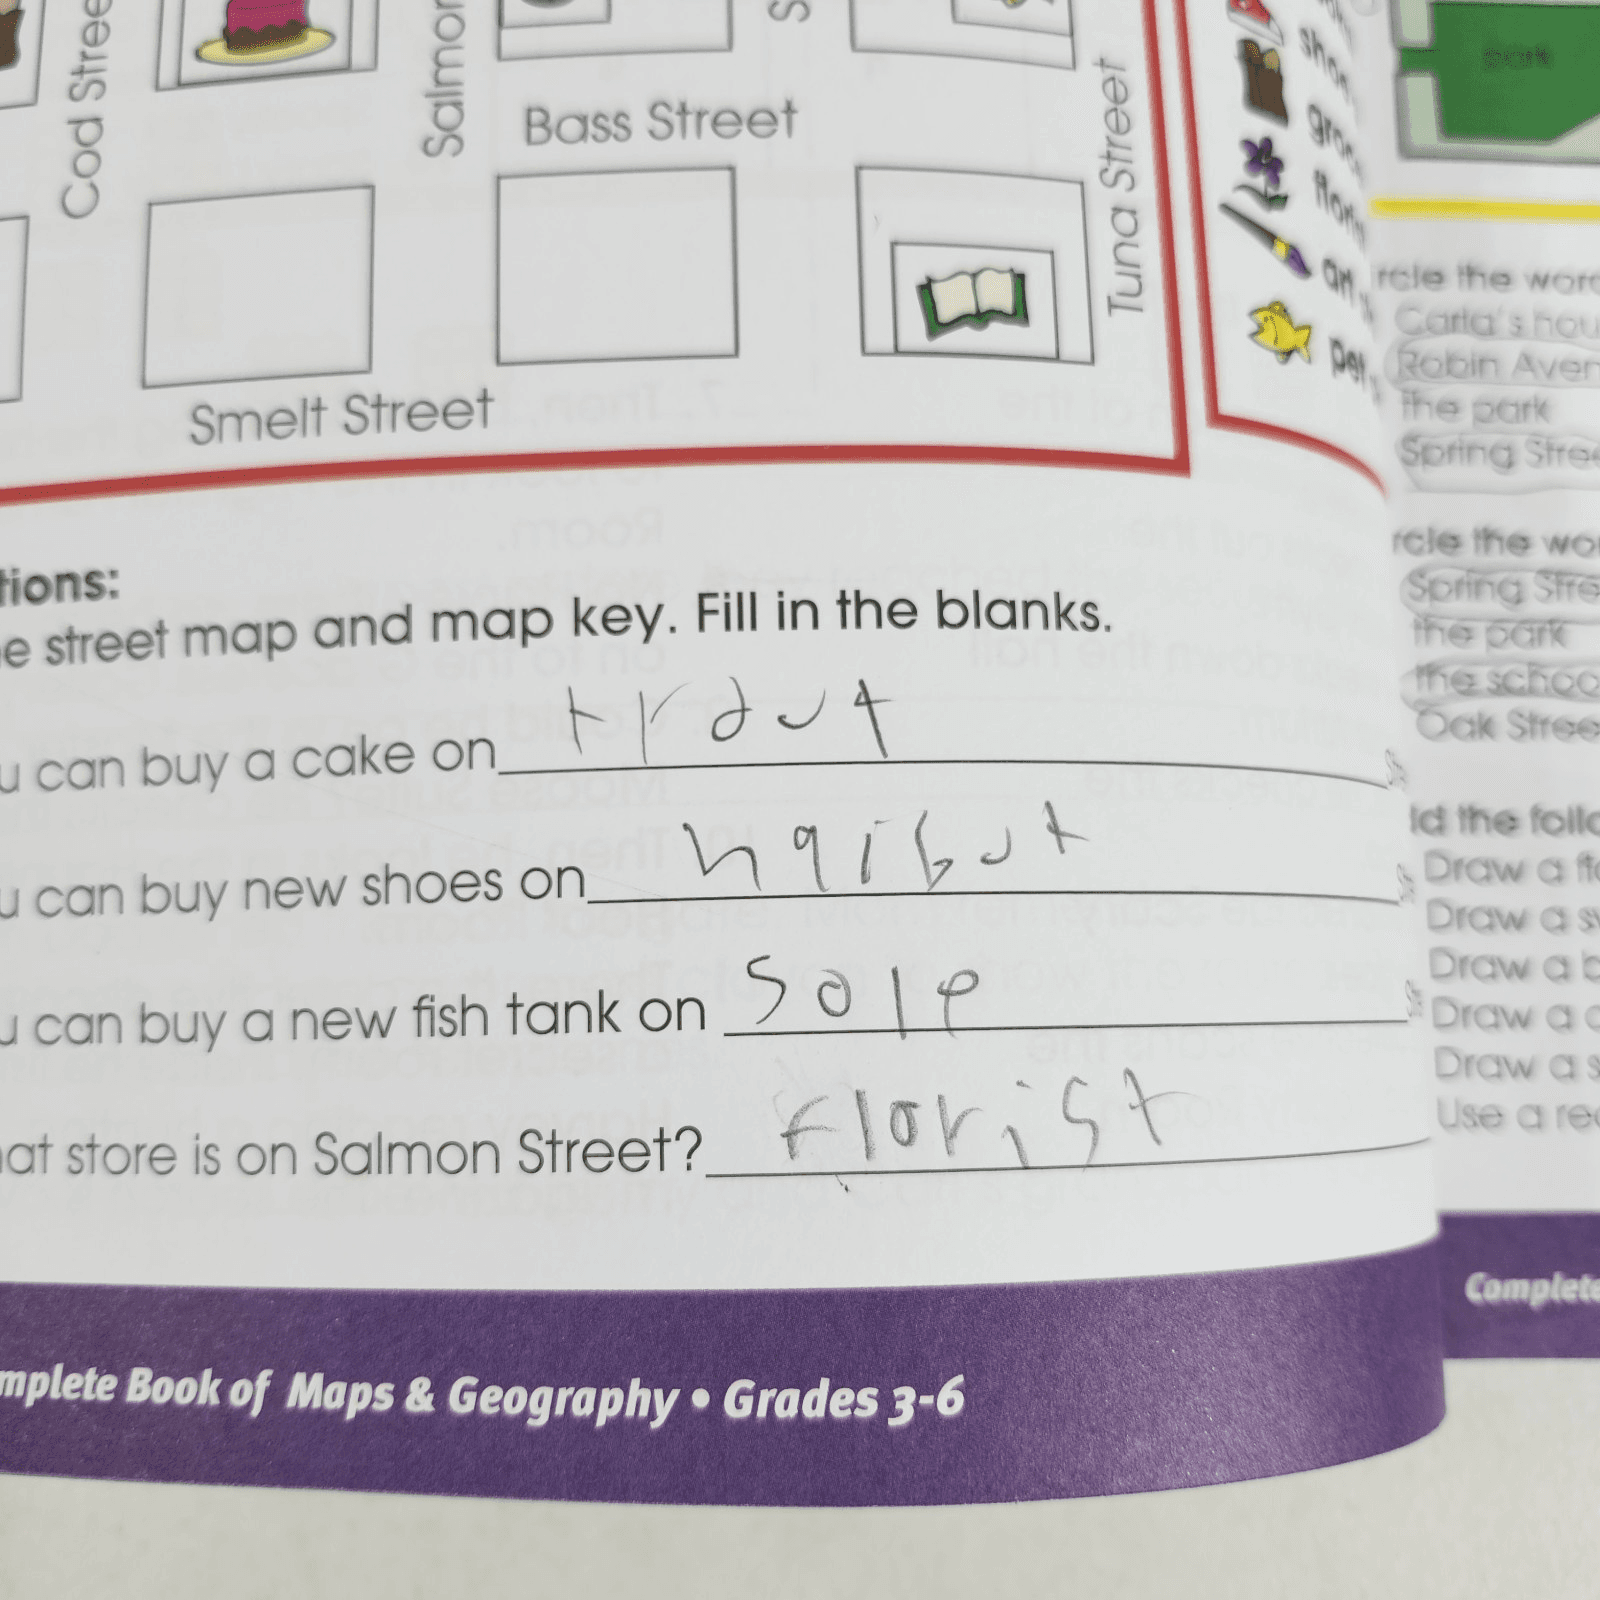 Cod Stree
Salmon
Bass Street
Tuna Street
Smelt Street
park
shoe
groc
floris
art
pet
tions:
e street map and map key. Fill in the blanks.
u can buy a cake on trout
u can buy new shoes on halibut
u can buy a new fish tank on sole
hat store is on Salmon Street? florist
mplete Book of Maps & Geography • Grades 3-6
rcle the word
Carla's hou
Robin Aven
the park
Spring Stree
rcle the wor
Spring Stre
the park
the schoo
Oak Stree
ld the follo
Draw a flo
Draw a sw
Draw a b
Draw a c
Draw a s
Use a red
Complete